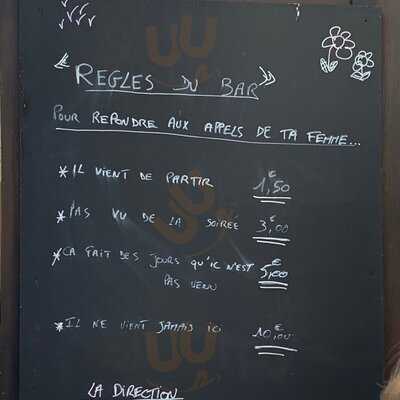 « REGLES DU BAR »
POUR REPONDRE AUX APPELS DE TA FEMME...
* IL VIENT DE PARTIR 1,50€
* PAS VU DE LA SOIRÉE 3,00€
* CA FAIT DES JOURS QU'IL N'EST 5,00€
PAS VENU
* IL NE VIENT JAMAIS ICI 10,00€
LA DIRECTION